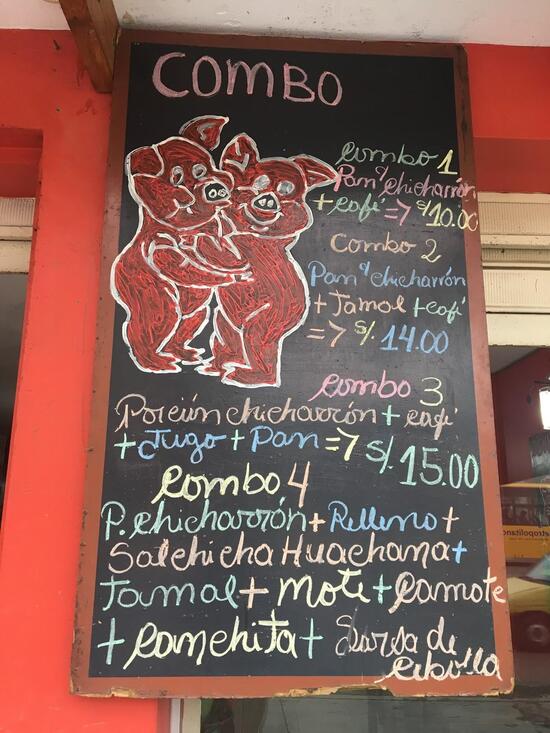 COMBO
Combo 1
Pan c/ chicharrón
+ café => S/ 10.00
Combo 2
Pan c/ chicharrón
+ Tamal + café
=> S/. 14.00
Combo 3
Porción chicharrón + café
+ Jugo + Pan => S/. 15.00
Combo 4
P. chicharrón + Relleno +
Salchicha Huachana +
Tamal + mote + Camote
+ Canchita + Sarsa de
Cebolla
etropolitano